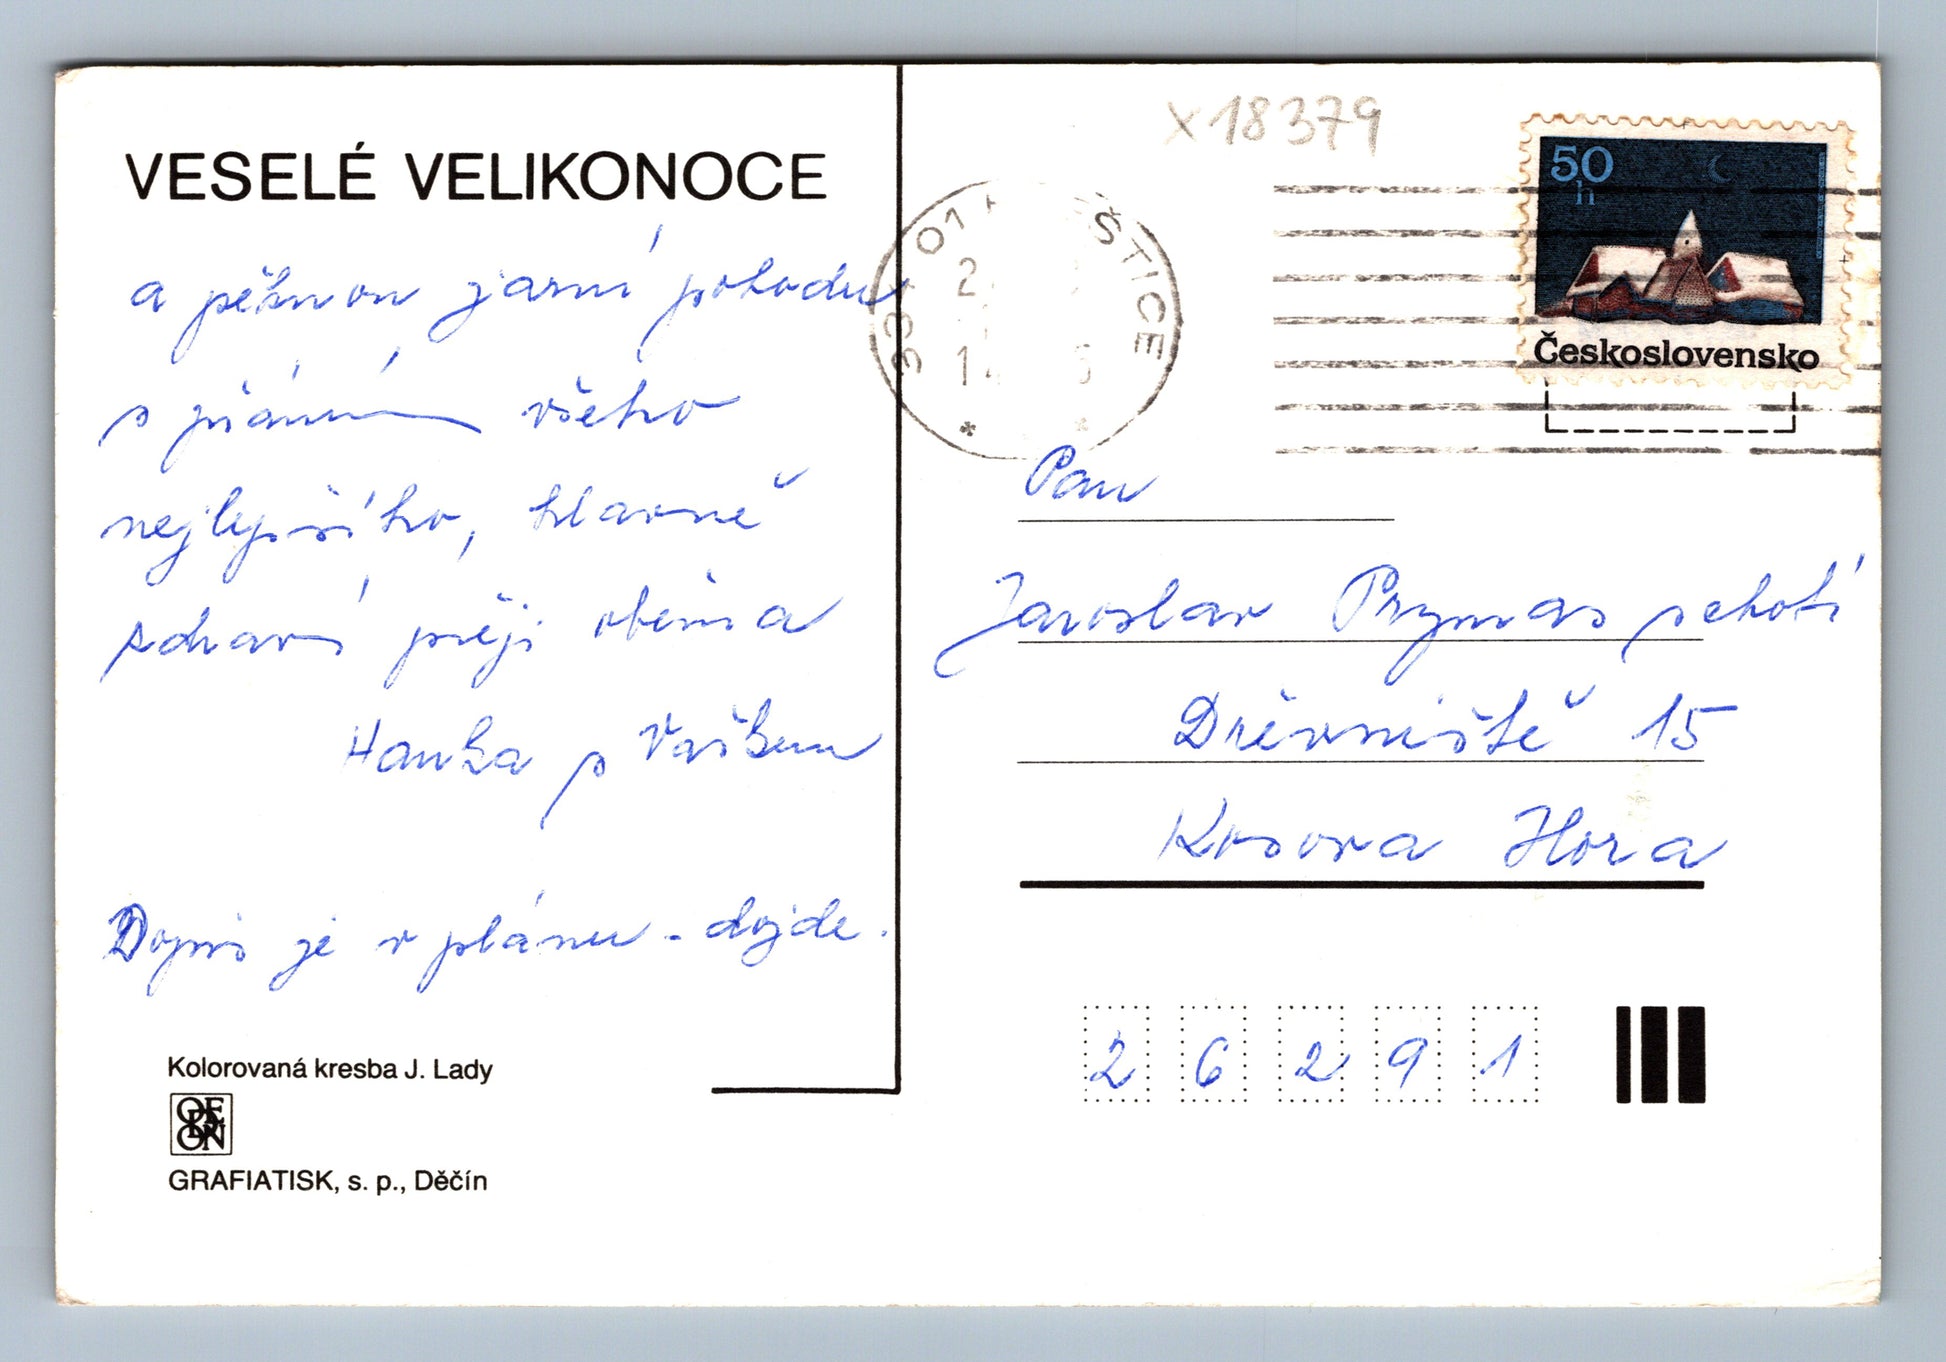 VESELÉ VELIKONOCE
a pěknou jarní pohodu
s přáním všeho
nejlepšího, hlavně
zdraví přeji oběma
Hanka s Vaškem
Dopis je v plánu - dojde.
Kolorovaná kresba J. Lady
ODEON
GRAFIATISK, s. p., Děčín
X 18379
50
h
Československo
Pan
Jaroslav Prymas s chotí
Dřevniště 15
Kosova Hora
2 6 2 9 1